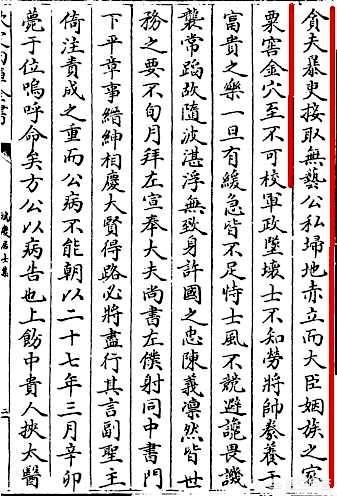 貪夫暴吏接取無藝公私埽地赤立而大臣姻族之家
粟窖金穴至不可校軍政墮壞士不知勞將帥豢養于
富貴之樂一旦有緩急皆不足恃士風不競避謗畏譏
襲常蹈故隨波湛浮無致身許國之忠陳義凛然皆世
務之要不旬月拜左宣奉大夫尚書左僕射同中書門
下平章事縉紳相慶大賢得路必將盡行其言副聖主
倚注責成之重而公病不能朝以二十七年三月辛卯
薨于位嗚呼命矣方公以病告也上飭中貴人挾太醫
鴻慶居士集
二